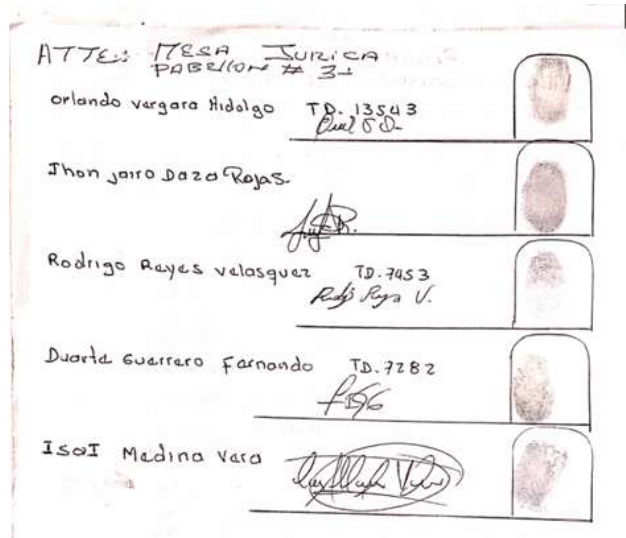 ATTE: MESA JURICA
PABELLON # 3
Orlando Vargara Hidalgo TD. 13543
Jhon Jairo Daza Rojas.
Rodrigo Reyes Velasquez TD. 7453
Duarte Guerrero Fernando TD. 7282
IsaI Medina Vera